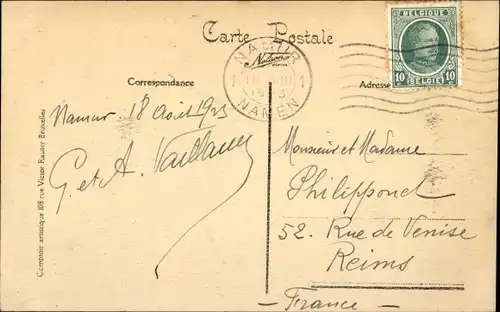 Carte Postale
BELGIQUE
10 BELGIË 10
NAMUR
Nels
NAMEN
Correspondance
Adresse
Namur 18 Août 1923
G. et A. Vaillant
Monsieur et Madame
Philipponet
52. Rue de Venise
Reims
— France —
Comptoir artistique 108 rue Victor Rauter Bruxelles